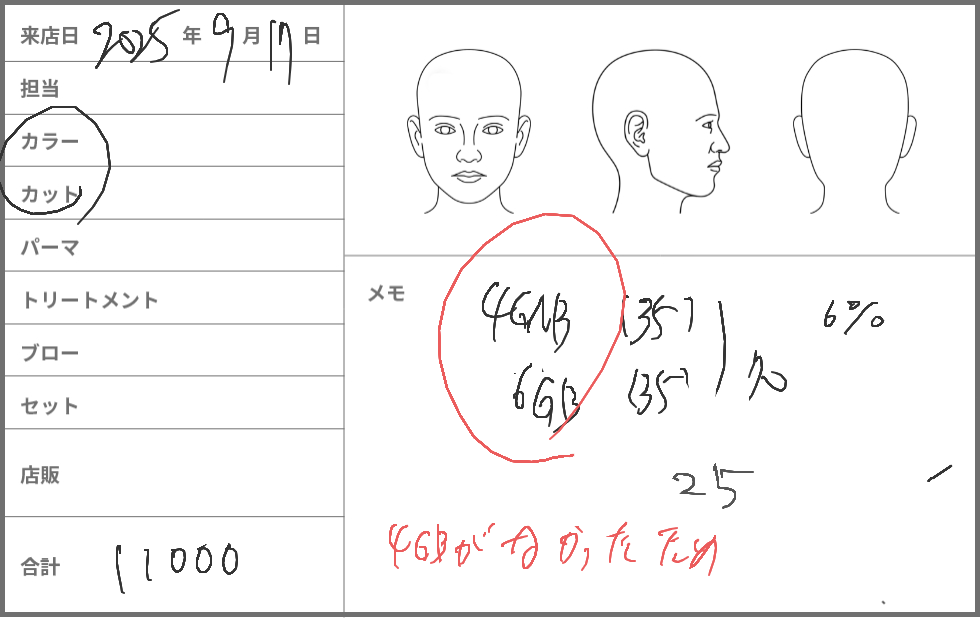 来店日 2025 年 9月 17 日
担当
カラー
カット
パーマ
トリートメント
ブロー
セット
店販
合計 11000
メモ
4GNB (35) 6%
6GB (35)
25
4GBがなかったため